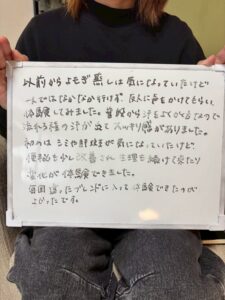 以前からよもぎ蒸しは気になっていたけど
一人ではなかなか行けず、友人に声をかけてもらい
体験してみました。普段から汗をよくかく方なので
流れる様の汗が出てスッキリ感がありました。
初めはシミや肝斑が気になっていたけど、
便秘も少し改善され生理も続けて来たり
変化が体験できました。
毎回違ったブレンドに入って体験できたのが
よかったです。